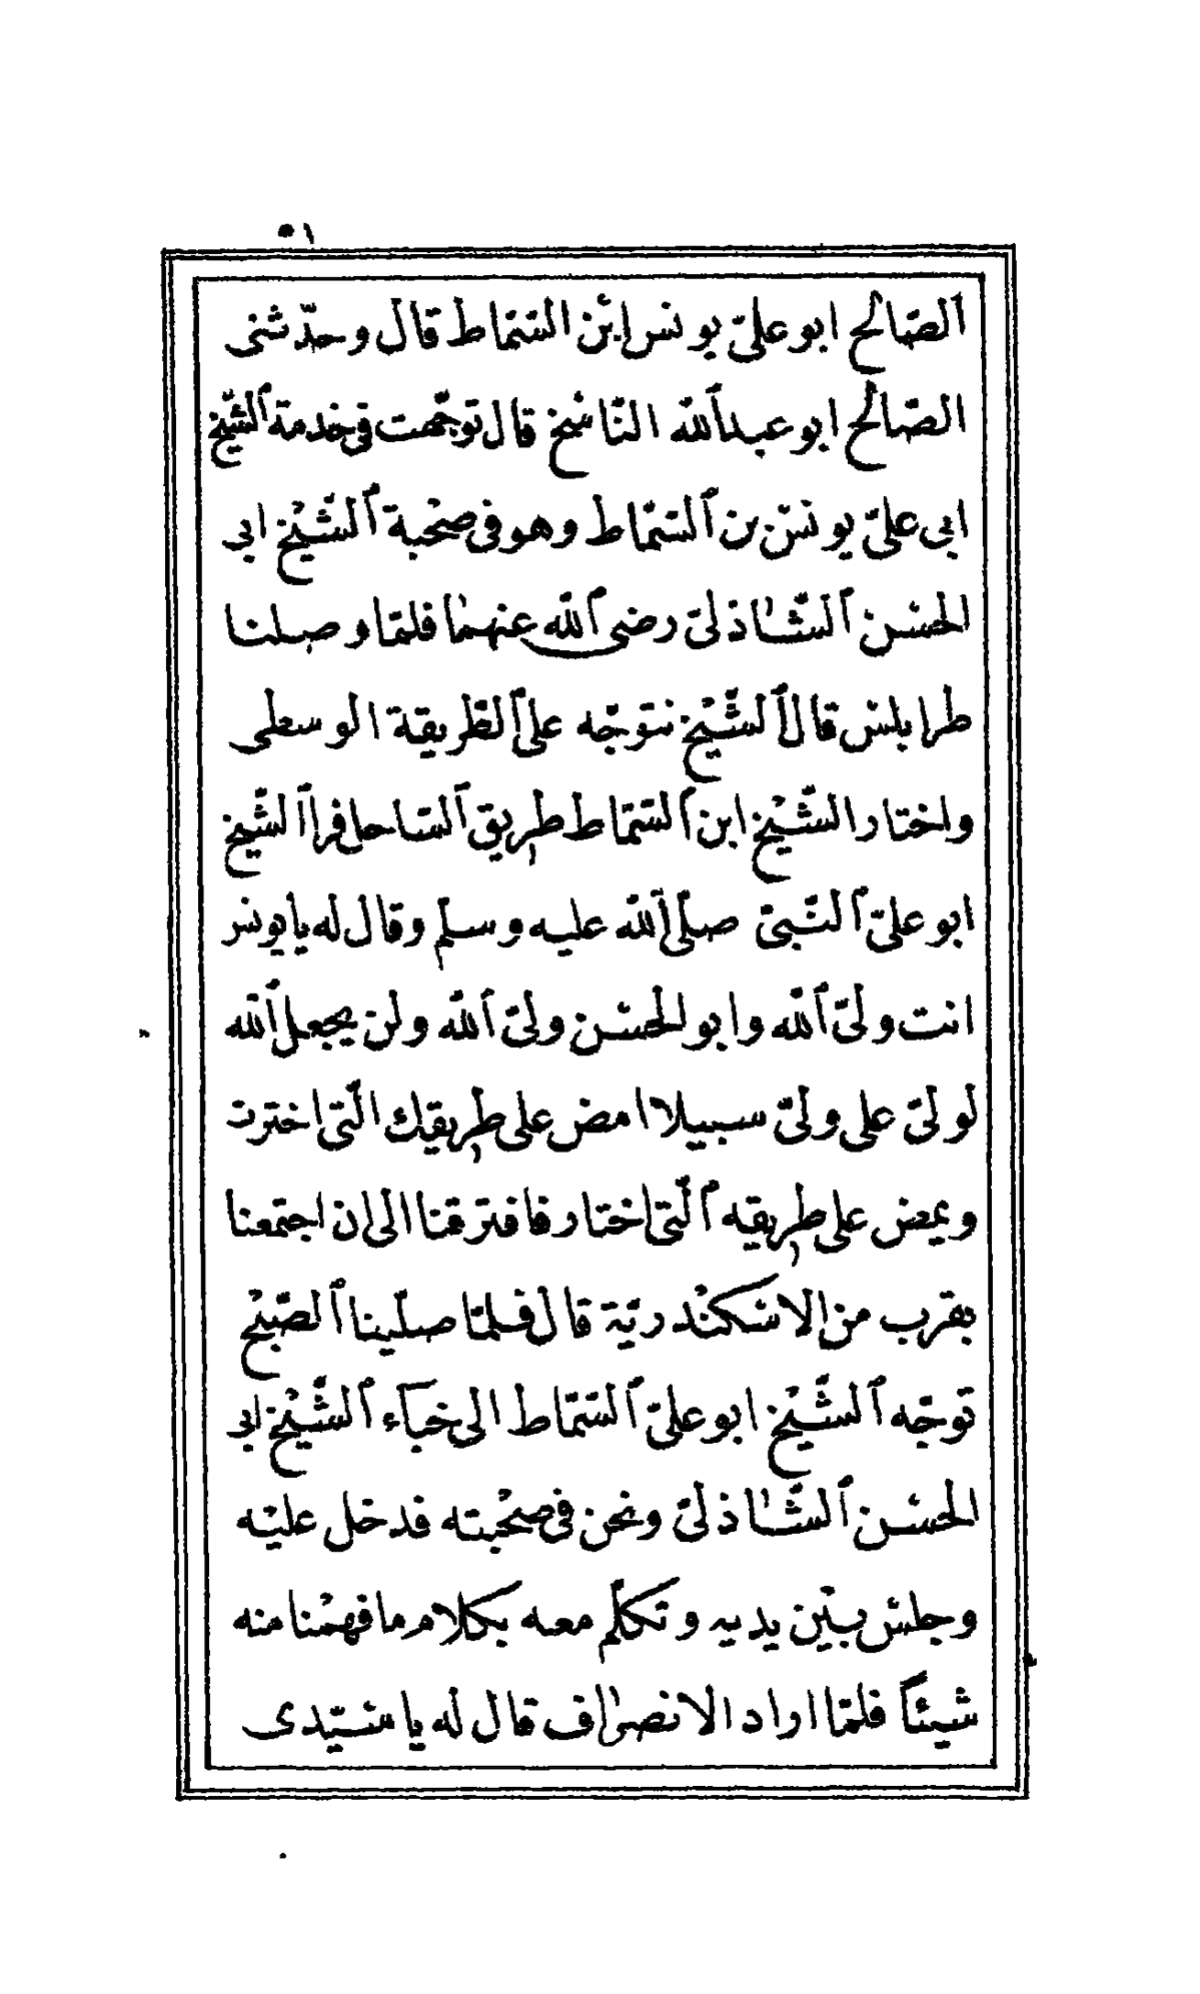 ١٠
ٱلصّالح ابو علىّ يونس ابن السّمّاط قال وحدّثنى
الصّالح ابو عبد ٱللّه النّاسخ قال توجّهت فى خدمة ٱلشّيخ
ابى علىّ يونس بن ٱلسّمّاط وهو فى صحْبة ٱلشّيْخ ابى
الحسن ٱلشّاذلىّ رضى ٱللّه عنهما فلمّا وصلنا
طرابلس قال ٱلشّيْخ نتوجّه على ٱلطّريقة الوسطى
واختار الشّيْخ ابن ٱلسّمّاط طريق ٱلسّاحل فرأ ٱلشّيخ
ابو علىّ ٱلنّبىّ صلّى ٱللّه عليه وسلّم وقال له يا يونس
انت ولىّ ٱللّه وابو الحسن ولىّ ٱللّه ولن يجعل ٱللّه
لولىّ على ولىّ سبيلا امض على طريقك الّتى اخترت
ويمض على طريقه ٱلّتى اختار فافترقنا الى ان اجتمعنا
بقرب من الاسكنْدريّة قال فلمّا صلّينا ٱلصّبْح
توجّه ٱلشّيْخ ابو علىّ ٱلسّمّاط الى خبآء ٱلشّيْخ ابى
الحسن ٱلشّاذلىّ ونحن فى صحْبته فدخل عليْه
وجلس بيْن يديه وتكلّم معه بكلام ما فهمْنا منه
شيئاً فلمّا اراد الانصراف قال له يا سيّدى